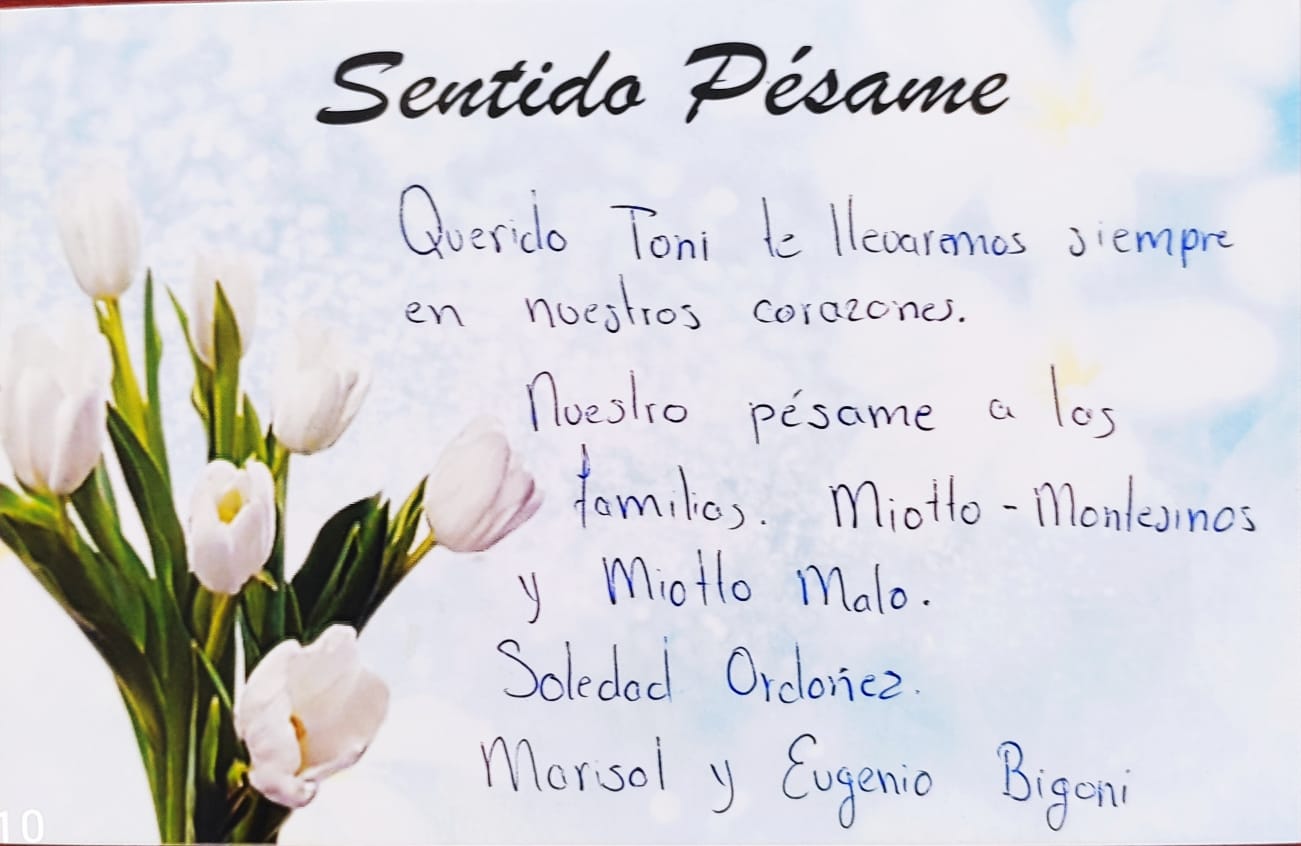 Sentido Pésame
Querido Toni te llevaremos siempre
en nuestros corazones.
Nuestro pésame a las
familias. Miotto - Montesinos
y Miotto Malo.
Soledad Ordoñez.
Marisol y Eugenio Bigoni
10